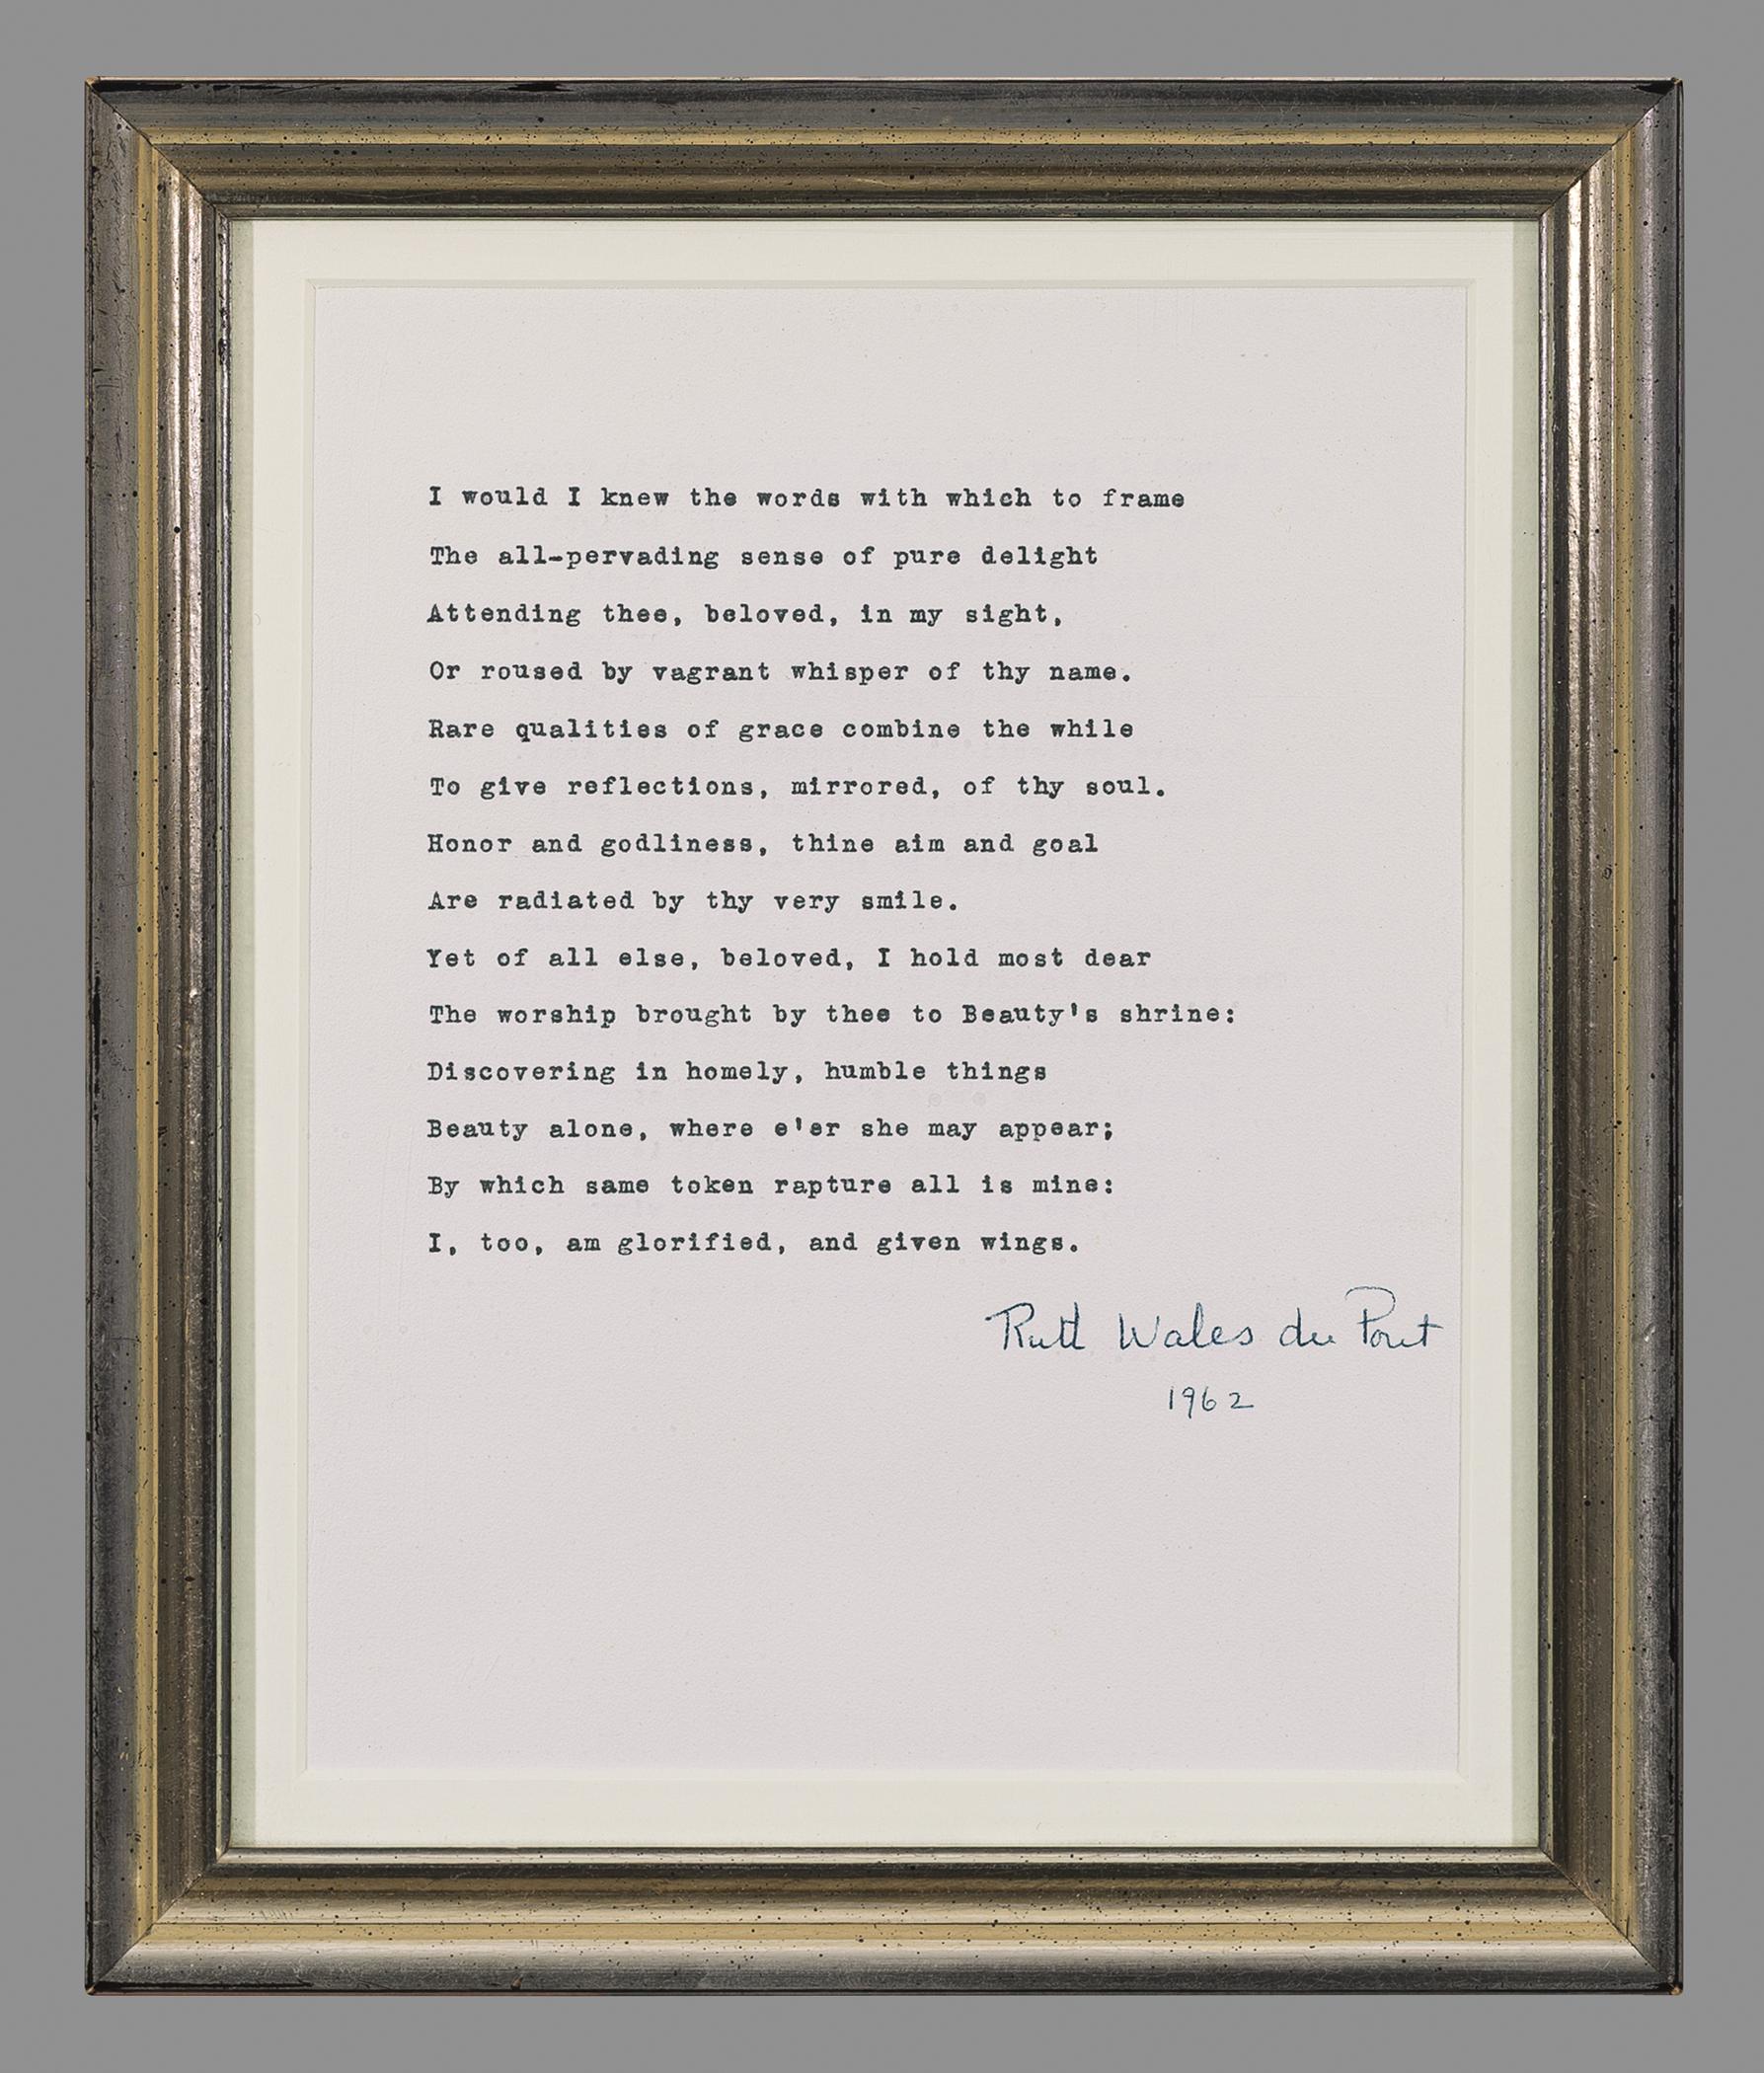 I would I knew the words with which to frame
The all-pervading sense of pure delight
Attending thee, beloved, in my sight,
Or roused by vagrant whisper of thy name.
Rare qualities of grace combine the while
To give reflections, mirrored, of thy soul.
Honor and godliness, thine aim and goal
Are radiated by thy very smile.
Yet of all else, beloved, I hold most dear
The worship brought by thee to Beauty's shrine:
Discovering in homely, humble things
Beauty alone, where e'er she may appear;
By which same token rapture all is mine:
I, too, am glorified, and given wings.
Ruth Wales du Pont
1962